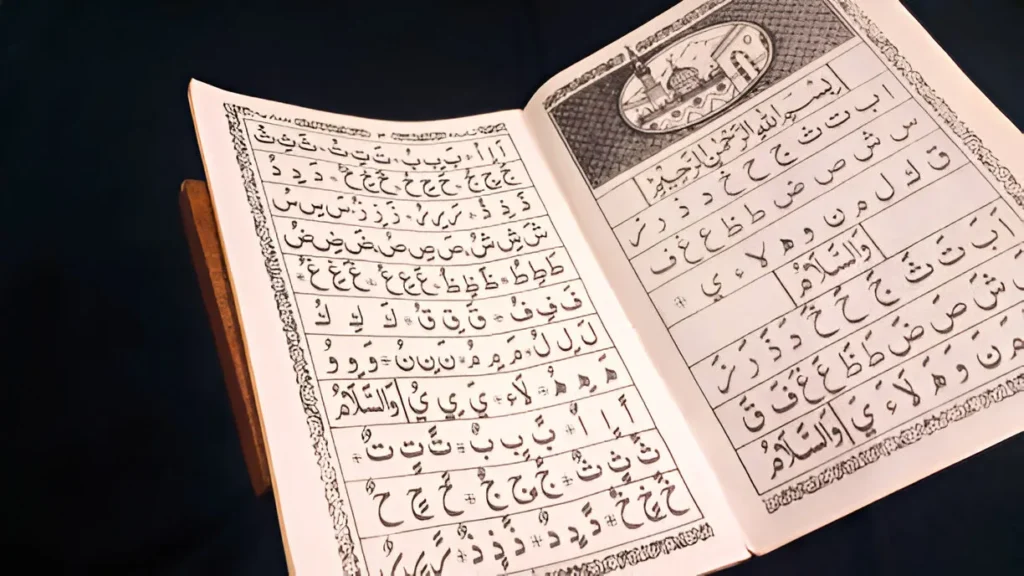 بِسْمِ اللهِ الرَّحْمٰنِ الرَّحِيْمِ
ا ب ت ث ج ح خ د ذ ر ز
س ش ص ض ط ظ ع غ ف
ق ك ل م ن و ه لا ء ي ÷
وَالسَّلَامُ
اَ بَ تَ ثَ جَ حَ خَ دَ ذَ رَ زَ
شَ صَ ضَ طَ ظَ عَ غَ فَ قَ
مَ نَ وَ هَ لَاءَ يَ وَالسَّلَامُ
اَ اِ اُ ÷ بَ بِ بُ ÷ تَ تِ تُ ÷ ثَ ثِ ثُ
جَ جِ جُ ÷ حَ حِ حُ ÷ خَ خِ خُ ÷ دَ دِ دُ
ذَ ذِ ذُ ÷ رَ رِ رُ ÷ زَ زِ زُ ÷ سَ سِ سُ
شَ شِ شُ ÷ صَ صِ صُ ÷ ضَ ضِ ضُ
طَ طِ طُ ÷ ظَ ظِ ظُ ÷ عَ عِ عُ ÷ غَ غِ غُ ÷
فَ فِ فُ ÷ قَ قِ قُ ÷ كَ كِ كُ
لَ لِ لُ ÷ مَ مِ مُ ÷ نَ نِ نُ ÷ وَ وِ وُ
هَ هِ هُ ÷ لَاءَ ÷ يَ يِ يُ وَالسَّلَامُ
اً اٍ اٌ ÷ بً بٍ بٌ ÷ تً تٍ تٌ ÷
ثً ثٍ ثٌ ÷ جً جٍ جٌ ÷ حً حٍ حٌ
خً خٍ خٌ ÷ دً دٍ دٌ ÷ ذً ذٍ ذٌ ÷ رً رٍ رٌ